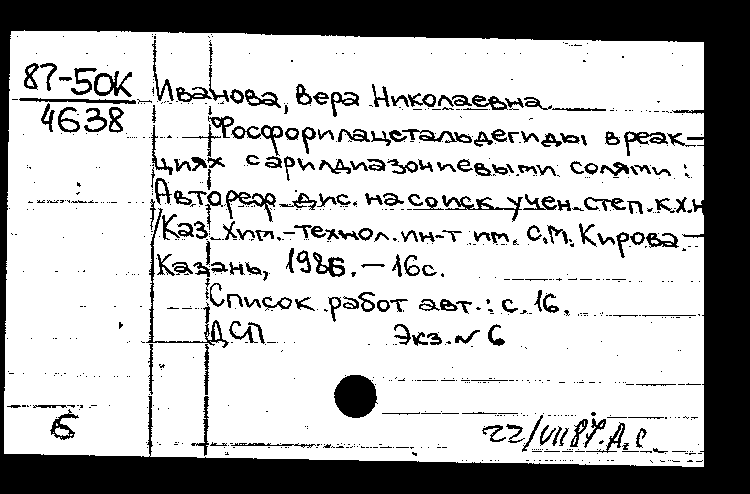 87-50К
4638
Иванова, Вера Николаевна
Фосфорилацетальдегиды в реак-
циях с арилдиазониевыми солями :
Автореф. дис. на соиск. учен. степ. к.х.н
/Каз. хим.-технол. ин-т им. С.М. Кирова.-
Казань, 1986. - 16с.
Список работ авт.: с. 16.
ДСП Экз. № 6
Б
22/VII 87. А.с.